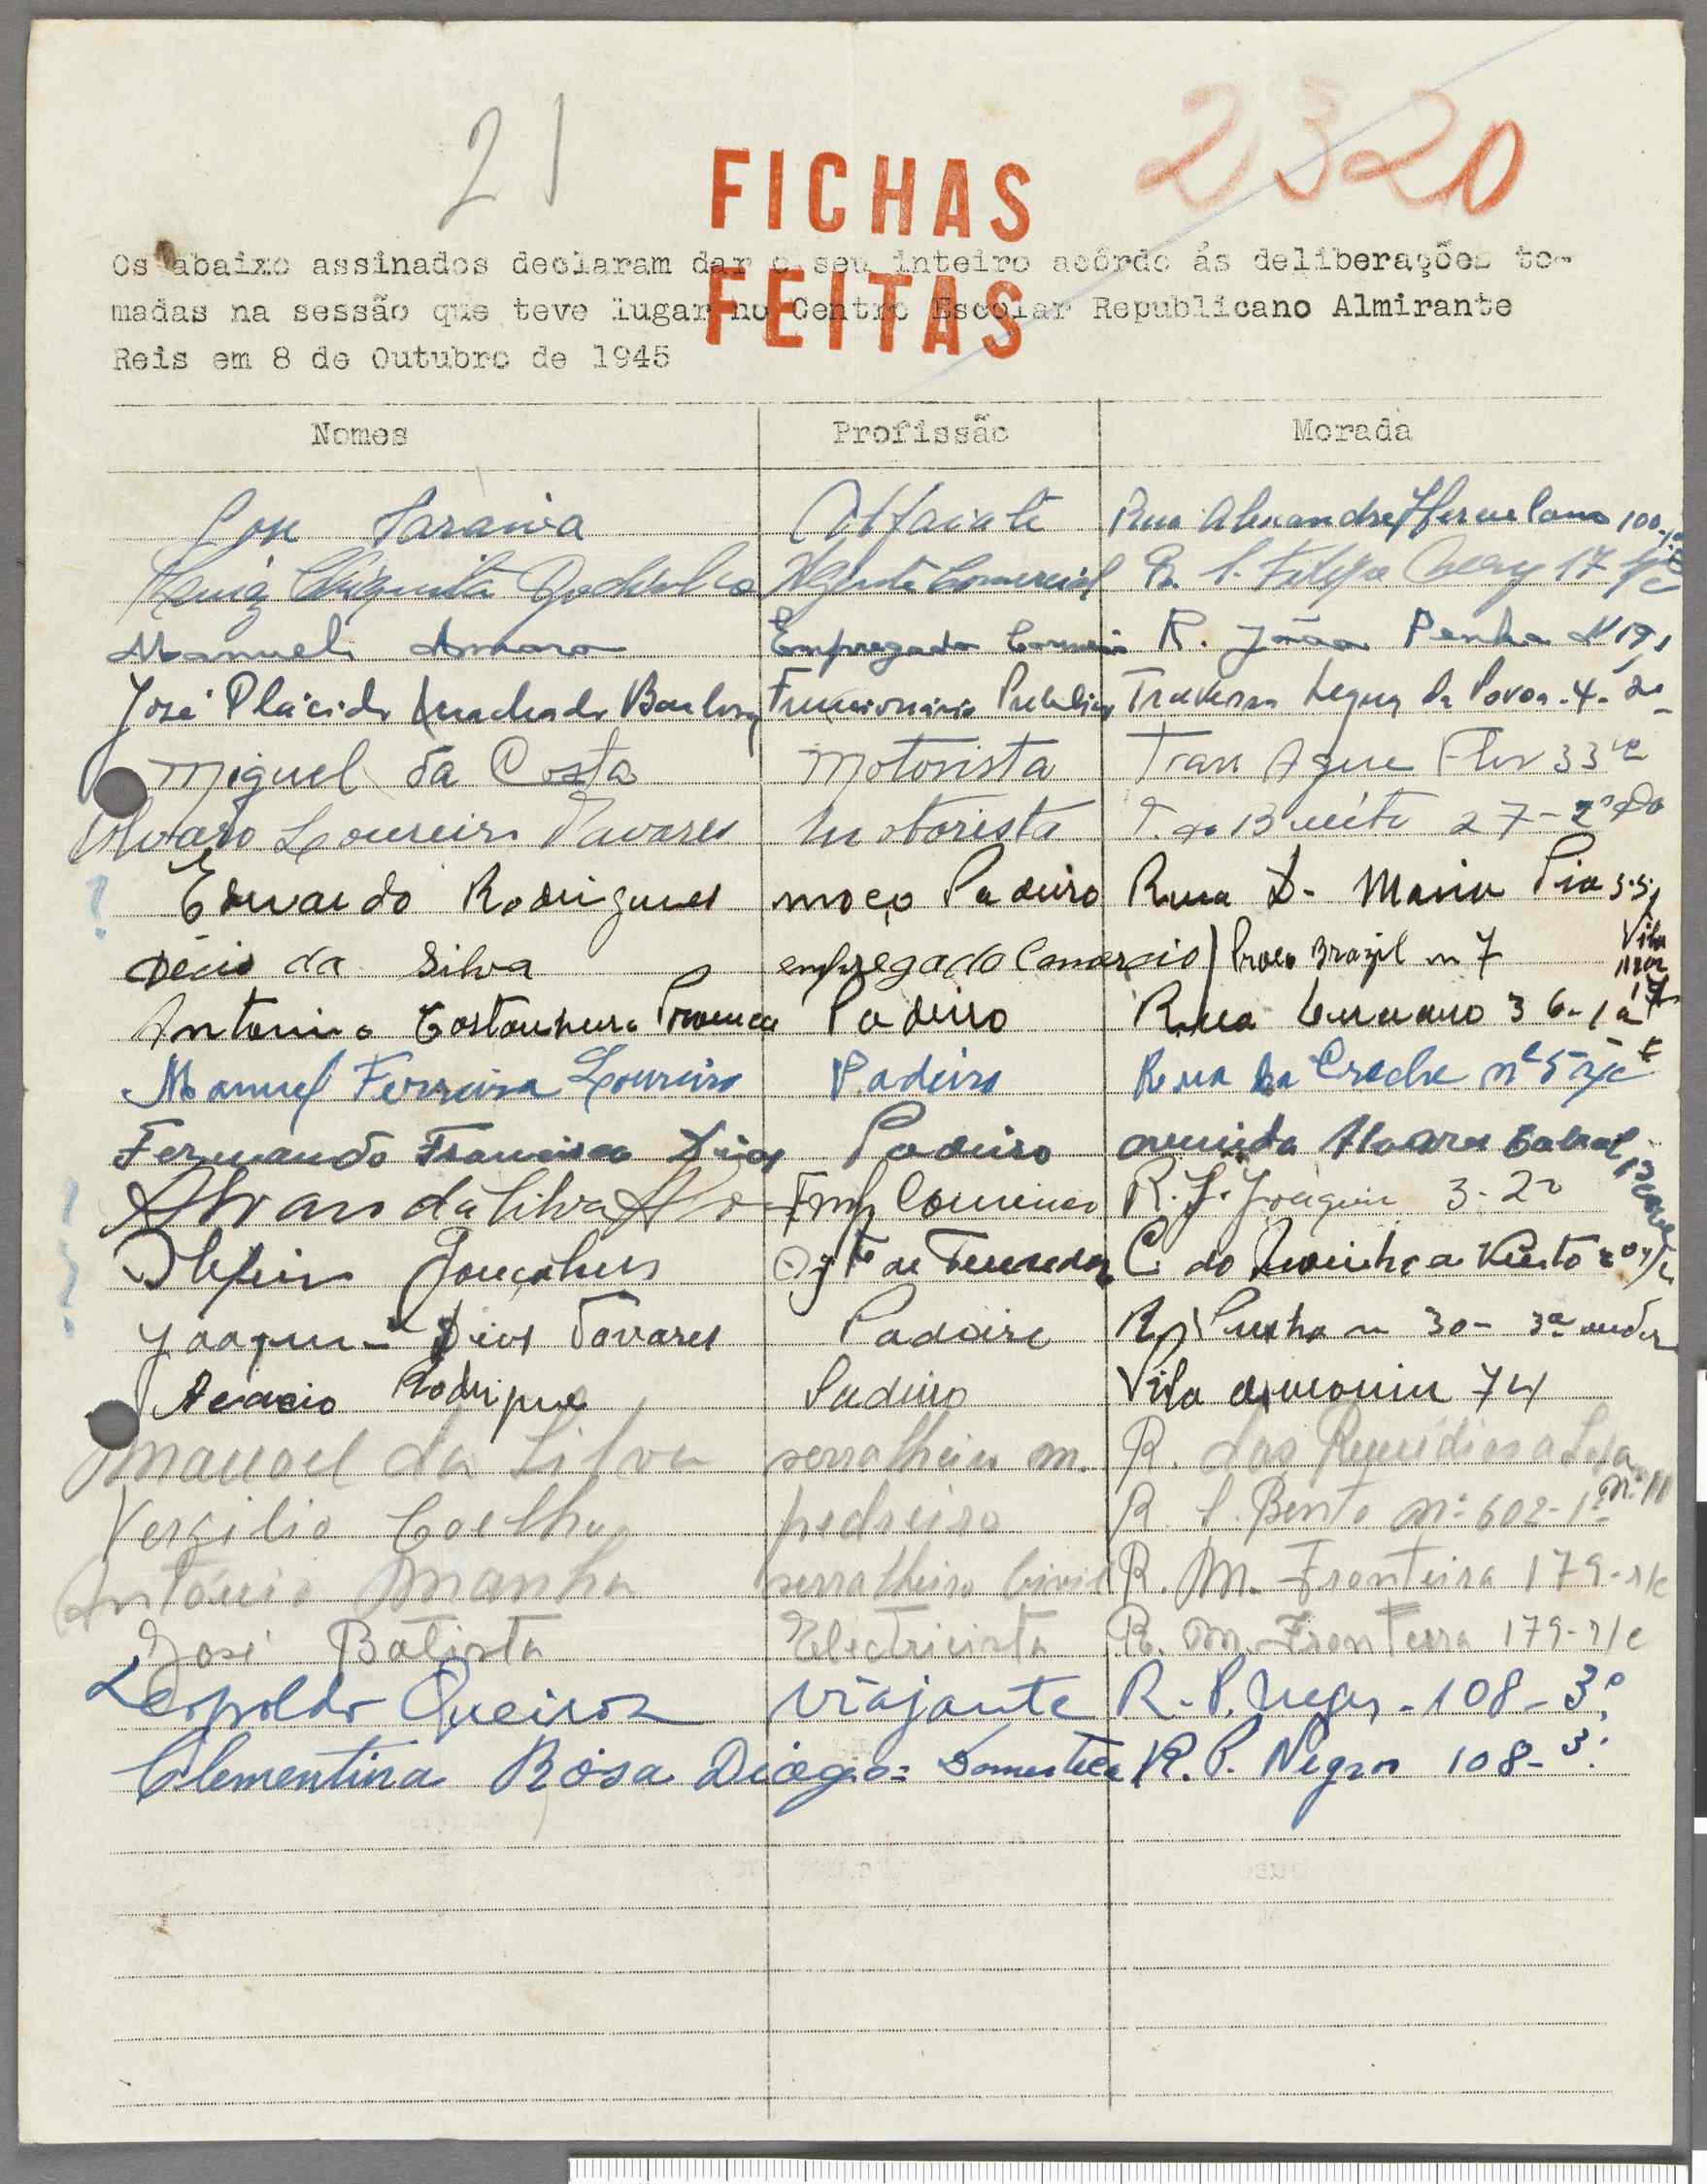 21
2320
FICHAS
FEITAS
Os abaixo assinados declaram dar o seu inteiro acôrdo ás deliberações to-
madas na sessão que teve lugar no Centro Escolar Republicano Almirante
Reis em 8 de Outubro de 1945
Nomes Profissão Morada
Saraiva Alfaiate Rua Alexandre Herculano 100
Luiz Agente Comercial 17
Manuel Amaro Empregado R. João Penha Nº 19
José Plácido Machado Barbosa Funcionário Publico Travessa Legua da Povoa - 4 - 2º
Miguel da Costa Motorista Trav Agua Flor 33
Alvaro Loureiro Tavares Motorista T. do 27 - 2º
Eduardo Rodrigues moço Padeiro Rua D. Maria Pia
Décio da Silva empregado Comercio Brazil n 7 Vila
Antonio Padeiro Rua 36-1
Manuel Ferreira Loureiro Padeiro Rua da Creche nº 5 r/c
Fernando Francisco Dias Padeiro avenida Alvares Cabral
Alvaro da Silva Emp Comercio R. S. Joaquim 3-2º
Gonçalves C. do
Joaquim Dias Tavares Padeiro 30 - 3º andar
Acacio Rodrigues Padeiro Vila 74
Manoel da Silva serralheiro m. R. dos Remédios a Lapa nº 11
Vergilio Coelho pedreiro R. S. Bento nº 602-1º
António Manha serralheiro Civil R. M. Fronteira 179-r/c
José Batista Electricista R. M. Fronteira 179-r/c
Leopoldo Queiroz Viajante R. P. Negro - 108 - 3º
Clementina Rosa Diogo = Domestica R. P. Negro 108 - 3º